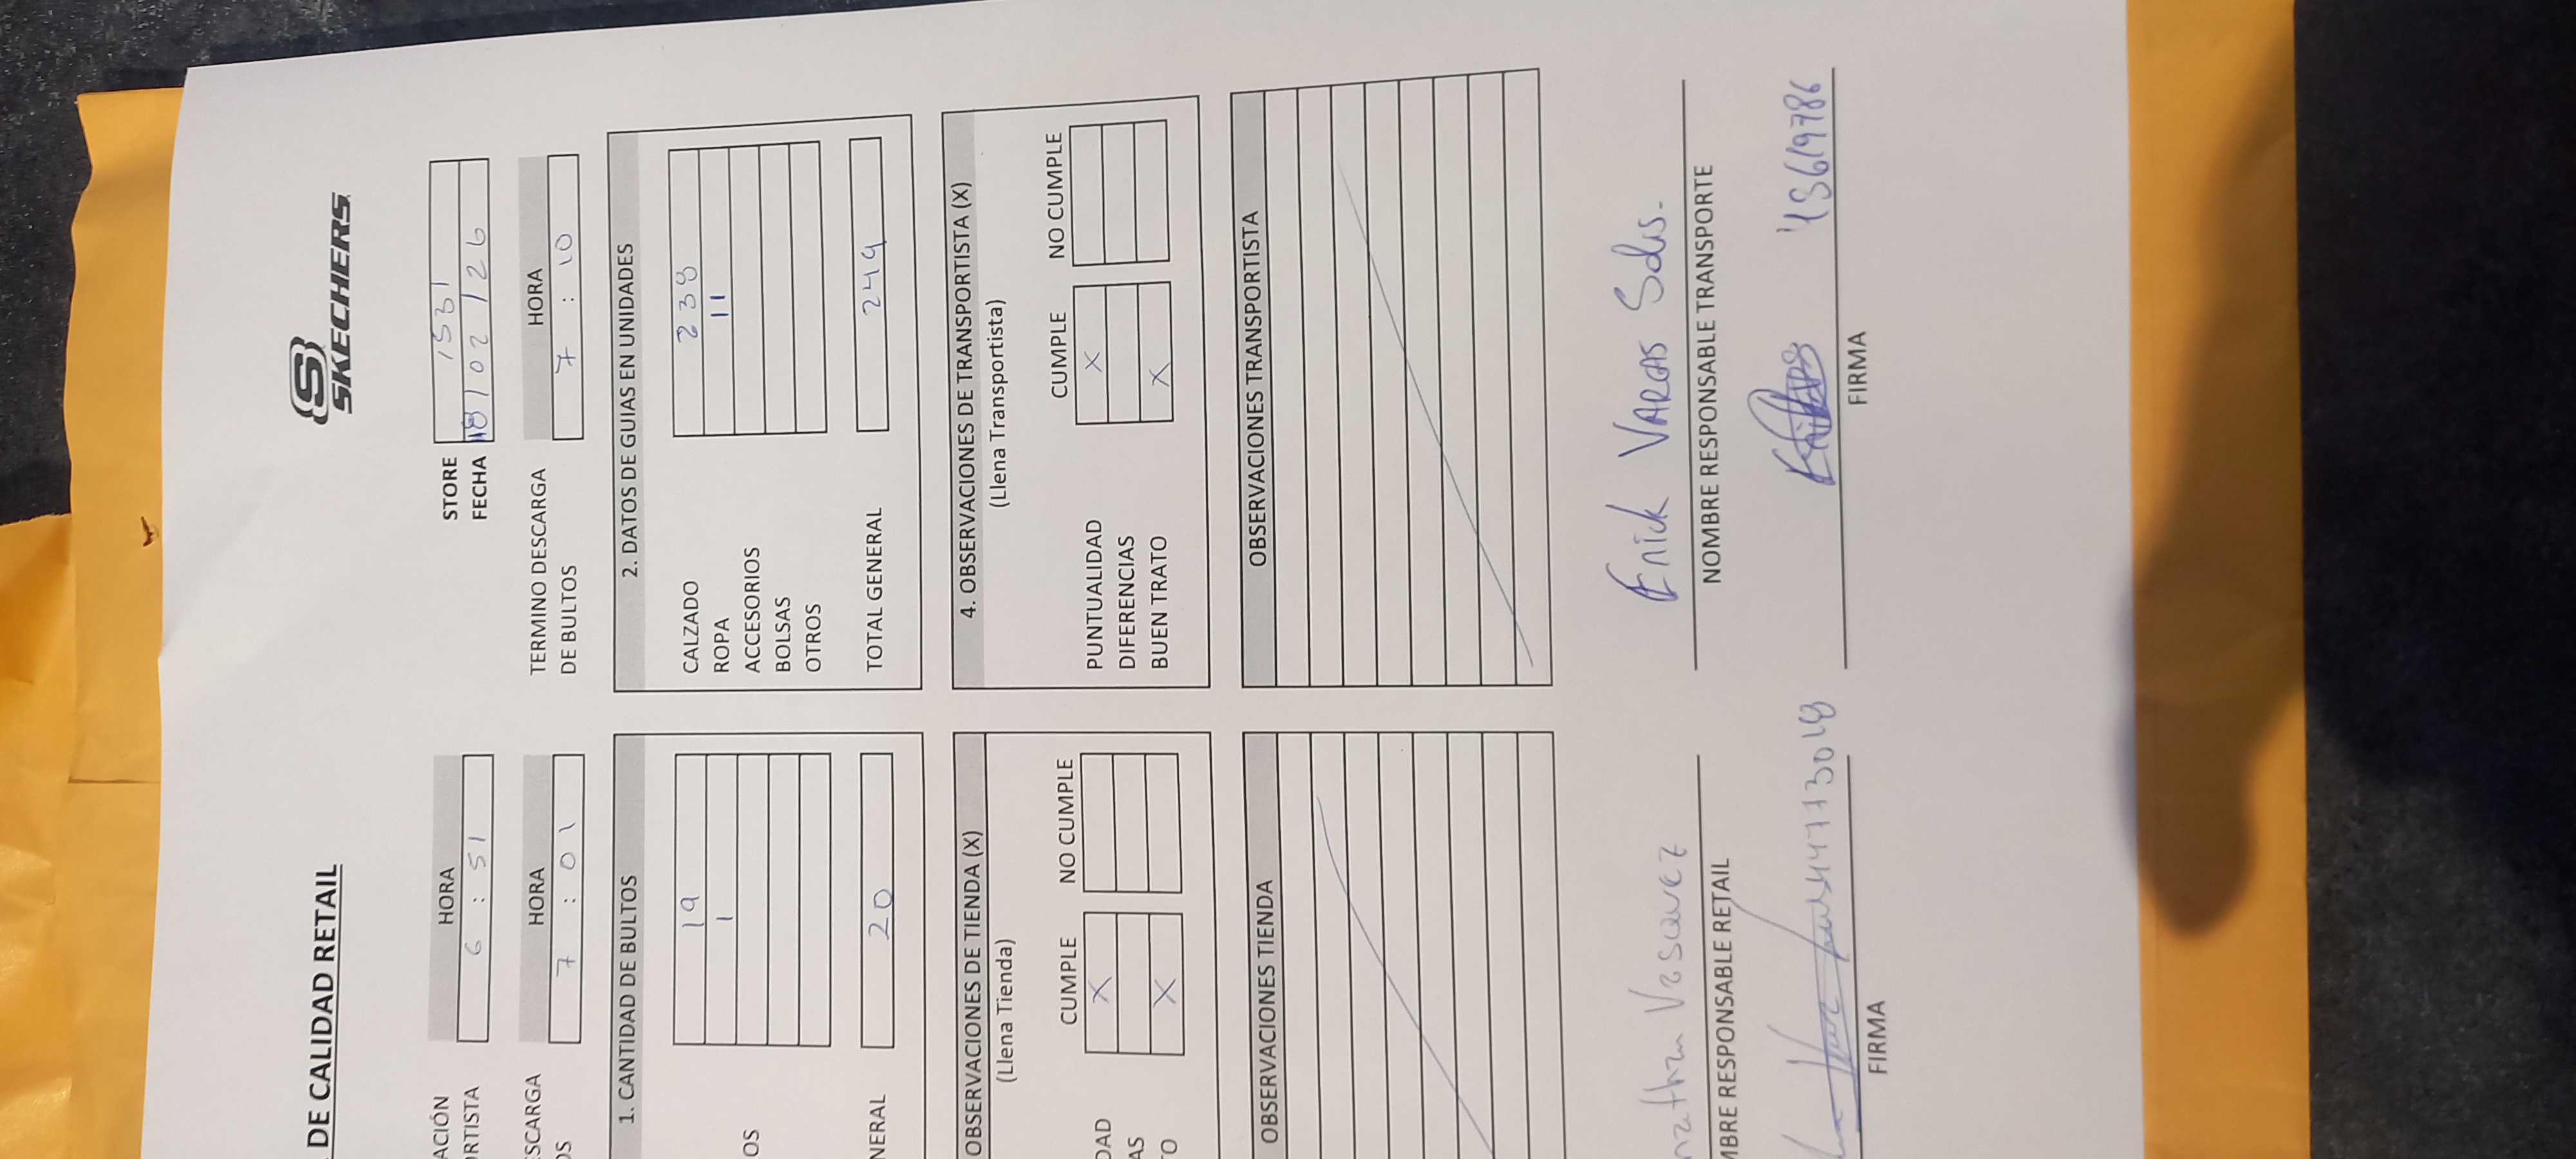 SKECHERS
DE CALIDAD RETAIL
STORE 1531
FECHA 18/02/26
ACIÓN HORA
ORTISTA 6 : 51
ESCARGA HORA
OS 7 : 01
TERMINO DESCARGA HORA
DE BULTOS 7 : 10
1. CANTIDAD DE BULTOS
19
1
OS
NERAL 20
2. DATOS DE GUIAS EN UNIDADES
CALZADO 238
ROPA 11
ACCESORIOS
BOLSAS
OTROS
TOTAL GENERAL 249
OBSERVACIONES DE TIENDA (X)
(Llena Tienda)
CUMPLE NO CUMPLE
DAD X
AS
TO X
4. OBSERVACIONES DE TRANSPORTISTA (X)
(Llena Transportista)
CUMPLE NO CUMPLE
PUNTUALIDAD X
DIFERENCIAS
BUEN TRATO X
OBSERVACIONES TIENDA
OBSERVACIONES TRANSPORTISTA
nathan Vasquez
MBRE RESPONSABLE RETAIL
FIRMA
Erick VARGAS Solis.
NOMBRE RESPONSABLE TRANSPORTE
45619786
FIRMA